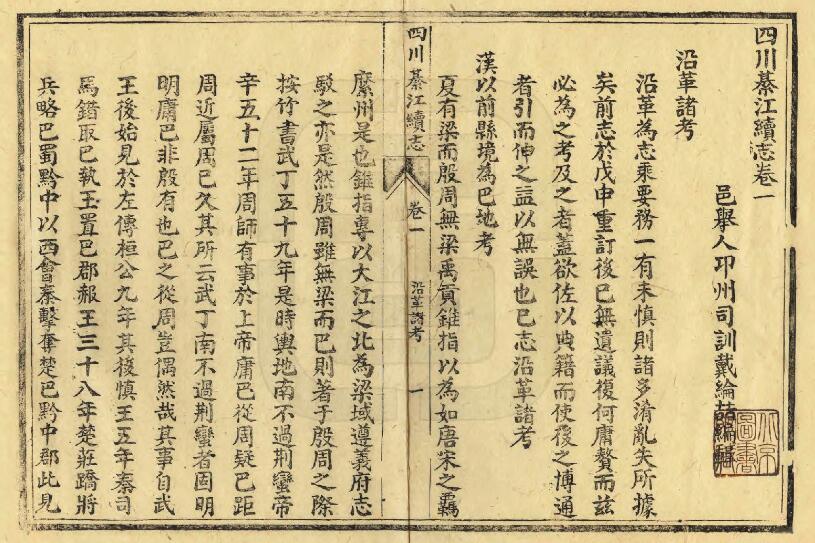 四川綦江續志卷一
邑舉人邛州司訓戴綸喆編輯
沿革諸考
沿革為志乘要務一有未慎則諸多淆亂失所據
矣前志於戊申重訂後已無遺議復何庸贅而茲
必為之考及之者蓋欲佐以典籍而使後之博通
者引而伸之益以無誤也巳志沿革諸考
漢以前縣境為巴地考
夏有梁而殷周無梁禹貢錐指以為如唐宋之羈
四川綦江續志
卷一
沿革諸考
一
縻州是也錐指專以大江之北為梁域遵義府志
駁之亦是然殷周雖無梁而巴則著于殷周之際
按竹書武丁五十九年是時輿地南不過荊蠻帝
辛五十二年周師有事於上帝庸巴從周疑巴距
周近屬周已久其所云武丁南不過荊蠻者固明
明庸巴非殷有也巴之從周豈偶然哉其事自武
王後始見於左傳桓公九年其後慎王五年秦司
馬錯取巴執王置巴郡赧王三十八年楚莊蹻將
兵略巴蜀黔中以西會秦擊奪楚巴黔中郡此見